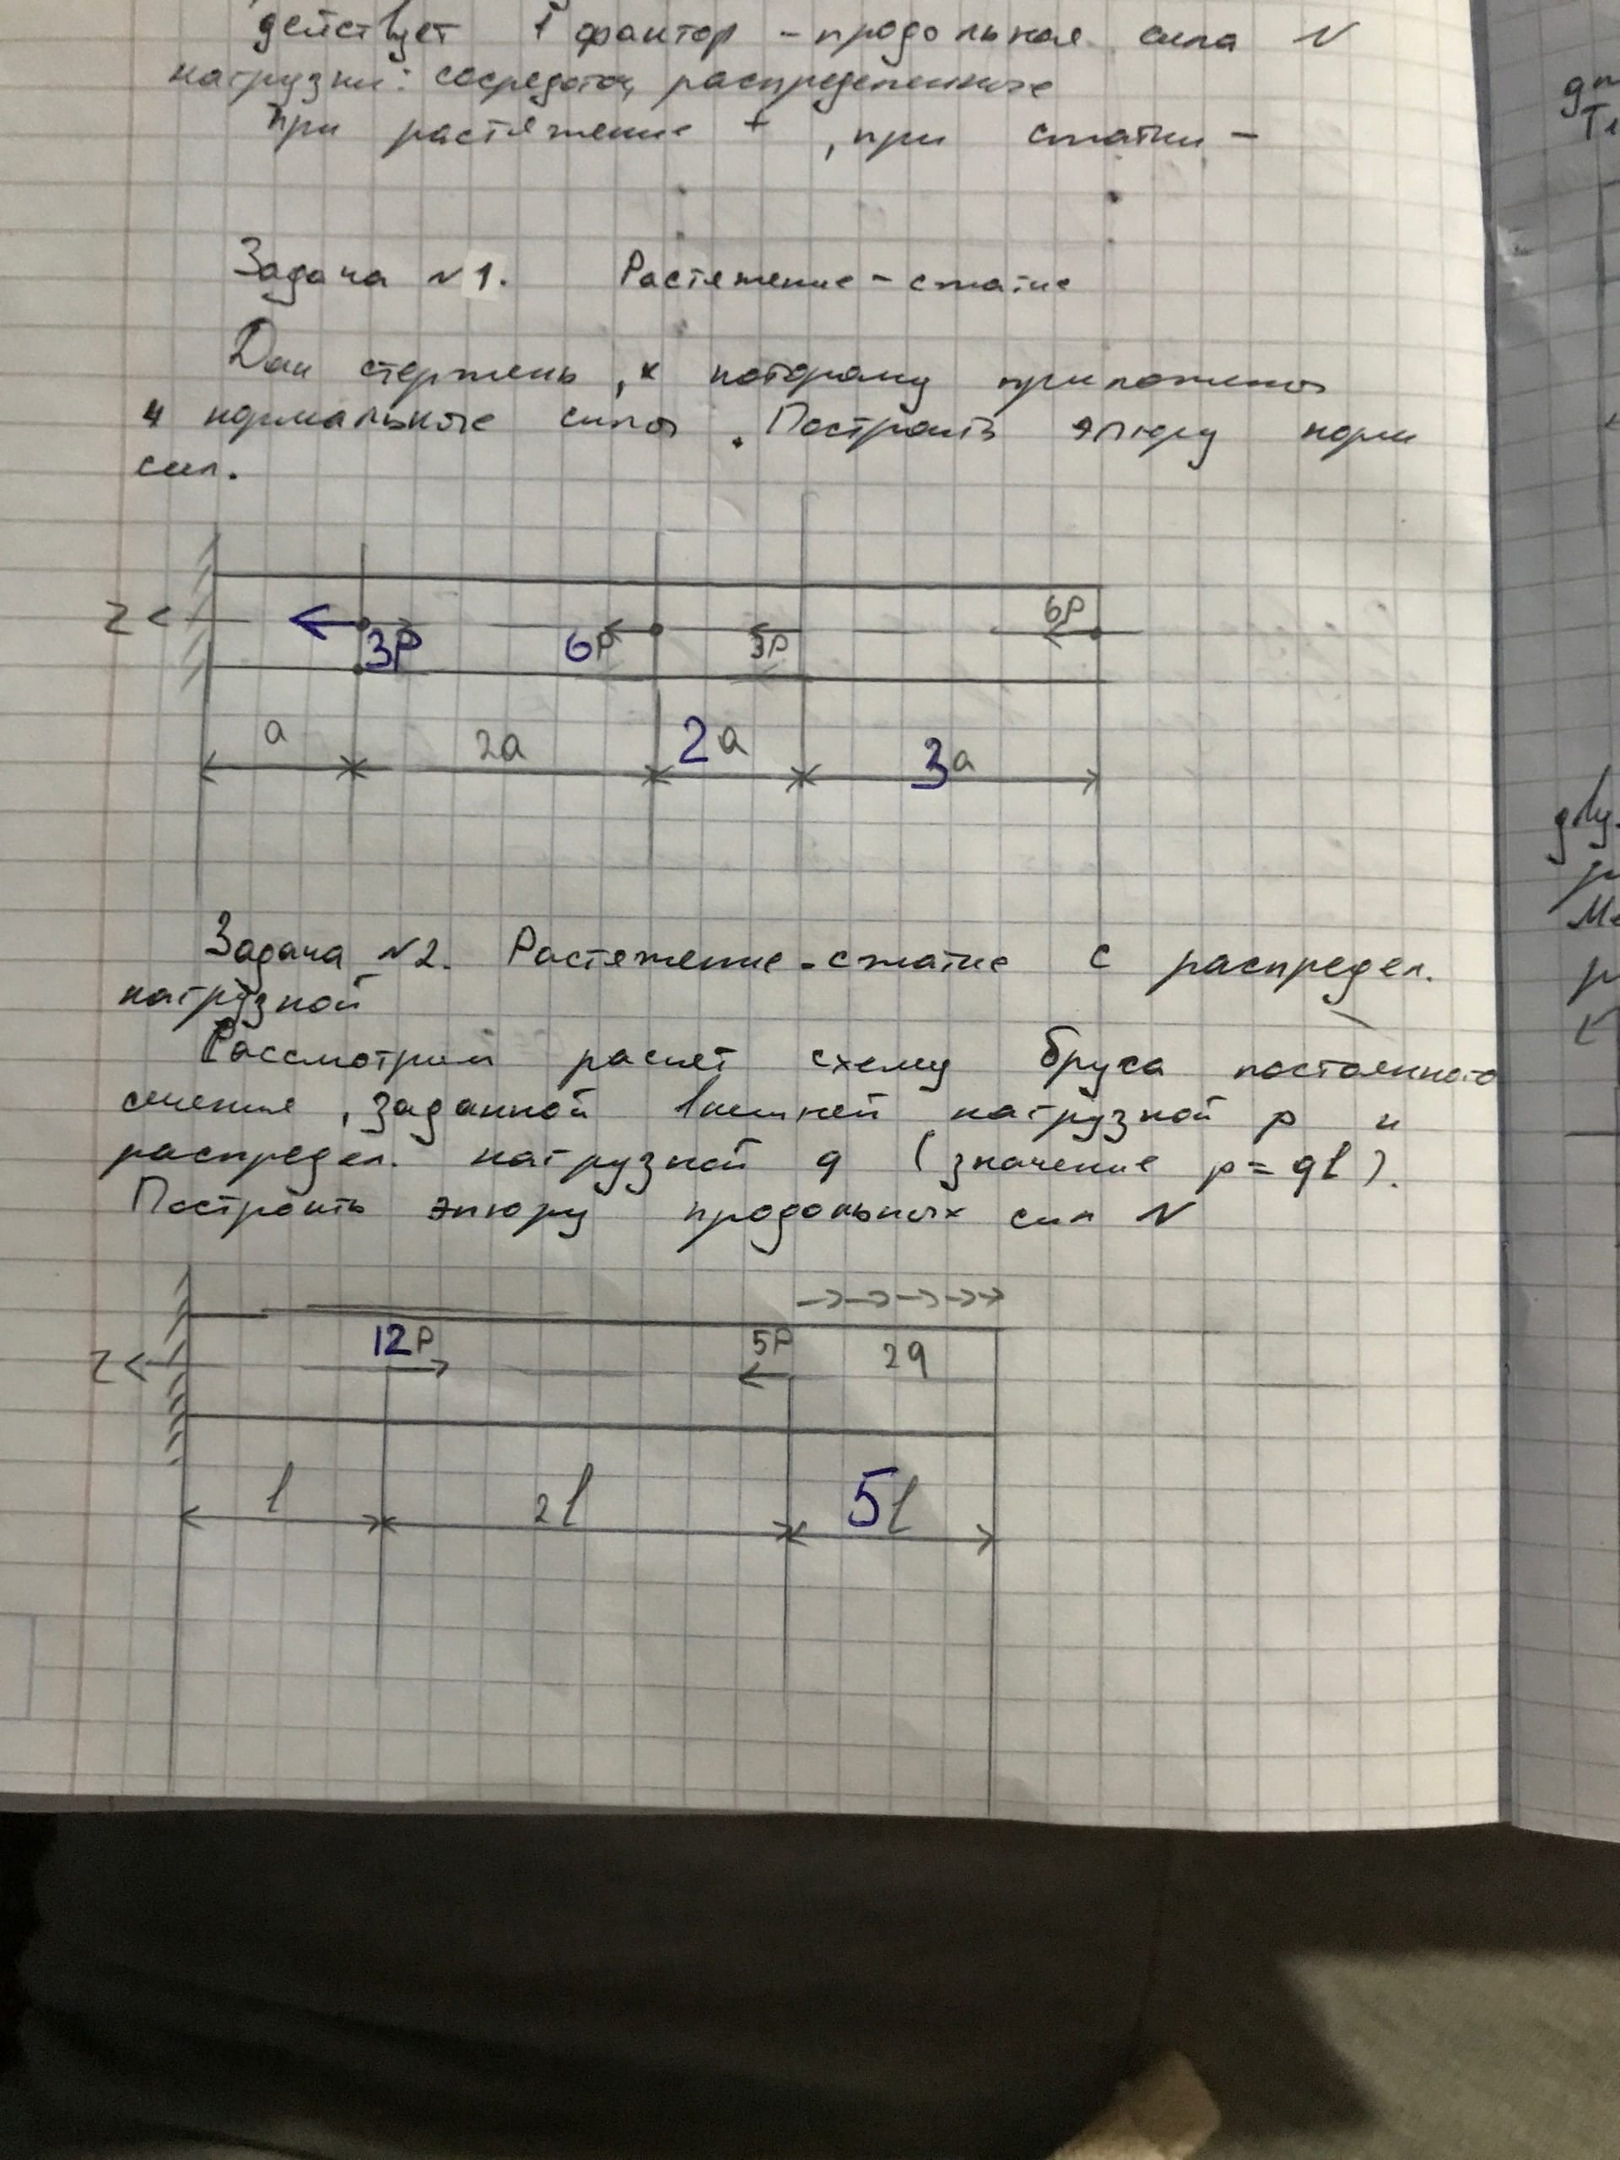 действует 1 фактор - продольная сила N
нагрузки: сосредоточ, распределенные
При растяжение + , при сжатии -
Задача №1. Растяжение - сжатие
Дан стержень, к которому приложены
4 нормальные силы. Построить эпюру норм
сил.
z
3P 6P 3P 6P
a 2a 2a 3a
Задача №2. Растяжение - сжатие с распредел.
нагрузкой
Рассмотрим расчет схему бруса постоянного
сечения, заданной внешней нагрузкой p и
распредел. нагрузкой q (значение p = ql).
Построить эпюру продольных сил N
z 12P 5P 2q
l 2l 5l